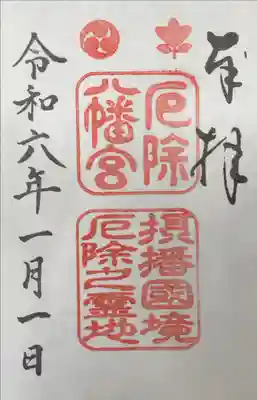 奉拝
厄除
八幡宮
摂播國境
厄除之霊地
令和六年一月一日